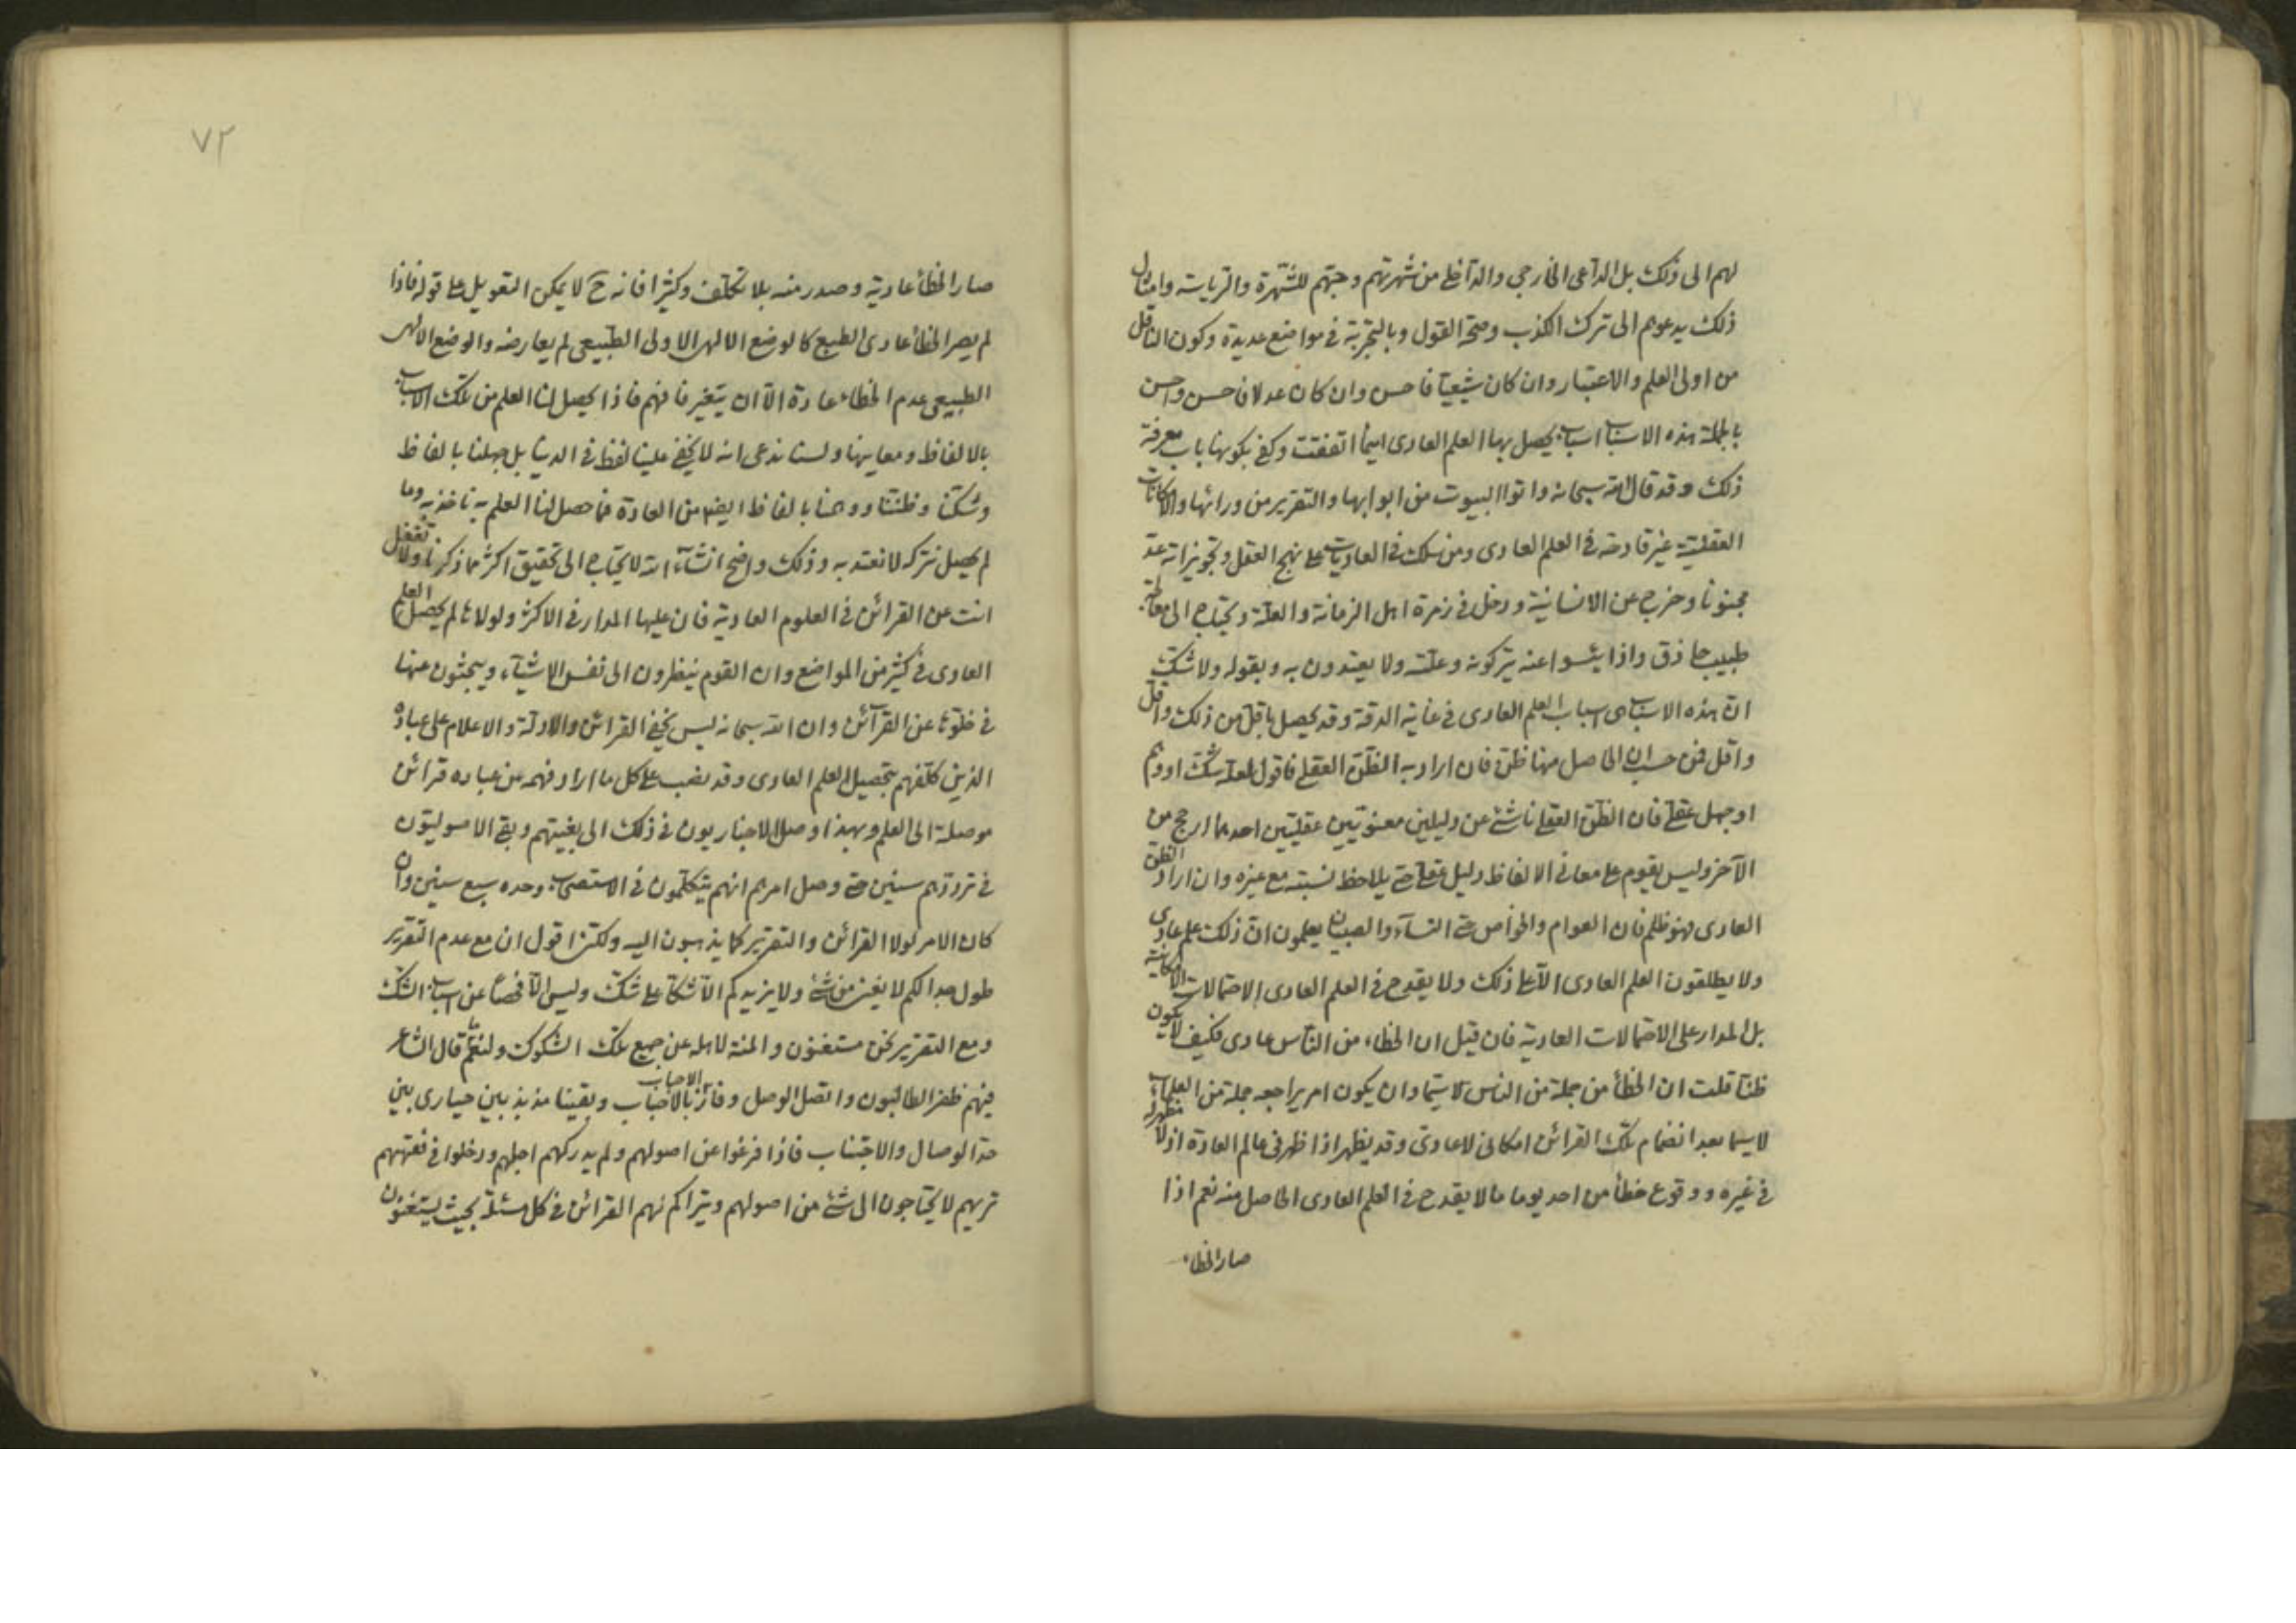 لهم الى ذلك بل الداعى الخارجى والداخلى من شهرتهم وحبهم للشهرة والرياسة وامثال
ذلك يدعوهم الى ترك الكذب وصحة القول وبالتجربة فى مواضع عديدة وكون الناقل
من اولى العلم والاعتبار وان كان شيعيا فاحسن وان كان عدلا فاحسن واحسن
بالجملة هذه الاسباب اسباب يحصل بها العلم العادى اينما اتفقت وكفى بكونها باب معرفة
ذلك وقد قال الله سبحانه واتوا البيوت من ابوابها والتقرير من ورائها والامكانات
العقلية غير قادحة فى العلم العادى ومن سلك فى العاديات على نهج العقل وتجويزاته عد
مجنونا وخرج عن الانسانية ودخل فى زمرة اهل الزمانة والعلة ويحتاج الى معالجة
طبيب حاذق واذا يئسوا عنه يتركونه وعلته ولا يعتدون به وبقوله ولا شك
ان هذه الاسباب هى اسباب العلم العادى فى غاية الدقة وقد يحصل باقل من ذلك واقل
واقل فمن حسب ان الحاصل منها ظن فان اراد به الظن العقلى فاقول لعله شك او وهم
او جهل عقلى فان الظن العقلى ناشئ عن دليلين معنويين عقليين احدهما ارجح من
الآخر وليس يقوم على معانى الالفاظ دليل عقلى حتى يلاحظ نسبته مع غيره وان اراد الظن
العادى فهو ظلم فان العوام والخواص حتى النسآء والصبيان يعلمون ان ذلك علم عادى
ولا يطلقون العلم العادى الا على ذلك ولا يقدح فى العلم العادى الاحتمالات الامكانية
بل المدار على الاحتمالات العادية فان قيل ان الخطاء من الناس عادى فكيف لا يكون
ظنا قلت ان الخطأ من جملة من الناس لا سيما وان يكون امر يراجعه جملة من العلماء
لا سيما بعد انضمام تلك القرائن امكانى لا عادى وقد يظهر اذا ظهر فى عالم العادة اذ لا مظهر له
فى غيره ووقوع خطأ من احد يوما ما لا يقدح فى العلم العادى الحاصل منه نعم اذا
صار الخطاء
٧٢
صار الخطأ عادية وصدر منه بلا تكلف وكثيرا فانه ح لا يمكن التعويل على قوله فاذا
لم يصر الخطأ عادى الطبع كالوضع الالهى الاولى الطبيعى لم يعارضه والوضع الالهى
الطبيعى عدم الخطاء عادة الا ان يتغير فافهم فاذا يحصل لنا العلم من تلك الاسباب
بالالفاظ ومعانيها ولسنا ندعى انه لا يخفى علينا لفظ فى الدنيا بل جهلنا بالفاظ
وشكنا وظننا ووهمنا بالفاظ ايضا من العادة فما حصل لنا العلم به ناخذ به وما
لم يحصل نتركه لا نعتد به وذلك واضح انشآء الله لا يحتاج الى تحقيق اكثر مما ذكرنا ولا تغفل
انت عن القرائن فى العلوم العادية فان عليها المدار فى الاكثر ولولاها لم يحصل العلم
العادى فى كثير من المواضع وان القوم ينظرون الى نفس الاشيآء ويبحثون عنها
فى خلوها عن القرآئن وان الله سبحانه ليس يخفى القرائن والادلة والاعلام على عباده
الذين كلفهم بتحصيل العلم العادى وقد نصب على كل ما اراد فهمه من عباده قرائن
موصلة الى العلم وبهذا وصل الاخباريون فى ذلك الى بغيتهم وبقى الاصوليون
فى ترددهم سنين حتى وصل امرهم انهم يتكلمون فى الاستصحاب وحده سبع سنين وان
كان الامر لولا القرائن والتقرير كما يذهبون اليه ولكن اقول ان مع عدم التقرير
طول جدالكم لا يغنى من شئ ولا يزيدكم الا شكا على شك وليس الا فحصا عن اسباب الشك
ومع التقرير نحن مستغنون والمنة لاهله عن جميع تلك الشكوك ولنعم ما قال الشاعر
فيهم ظفر الطالبون واتصل الوصل وفاز الاحباب بالاحباب وبقينا مذبذبين حيارى بين
حد الوصال والاجتناب فاذا فرغوا عن اصولهم ولم يدركهم اجلهم ودخلوا فى فقههم
تريهم لا يحتاجون الى شئ من اصولهم ويتراكم لهم القرائن فى كل مسئلة بحيث يستغنون